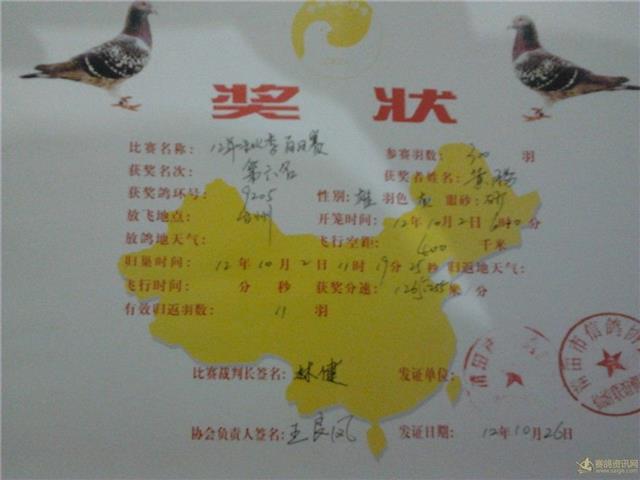 奖 状
比赛名称: 12年秋季百日赛 参赛羽数: 300 羽
获奖名次: 第六名 获奖者姓名:
获奖鸽环号: 9205 性别: 雄 羽色 灰 眼砂:
放飞地点: 州 开笼时间: 12年10月2日6 40分
放鸽地天气: 飞行空距: 400 千米
归巢时间: 12年10月2日11时19分25秒 归返地天气:
飞行时间: 分 秒 获奖分速: 米/分
有效归返羽数: 11 羽
比赛裁判长签名: 林健 发证单位:
协会负责人签名: 王良凤 发证日期: 12年10月26日
市信鸽协
赛鸽资讯网
www.saige.com